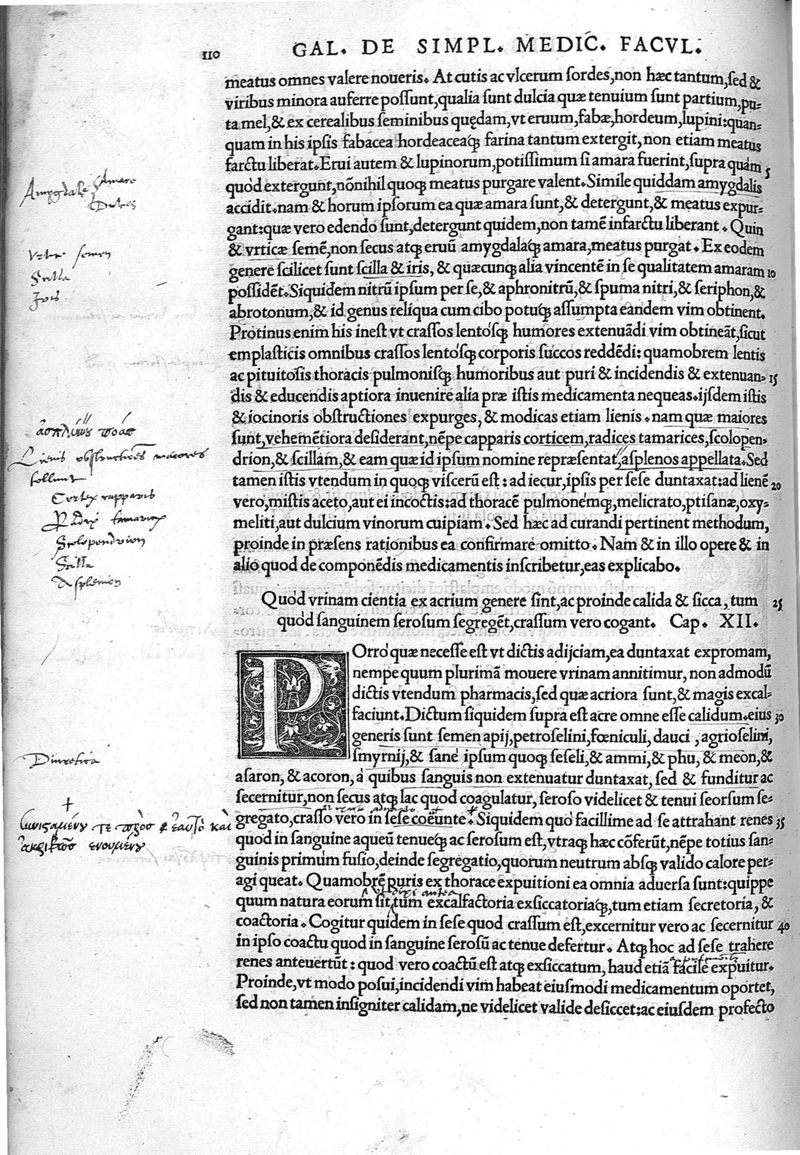 110
GAL. DE SIMPL. MEDIC. FACVL.
meatus omnes valere noueris. At cutis ac vlcerum sordes, non hæc tantum, sed &
viribus minora auferre possunt, qualia sunt dulcia quæ tenuium sunt partium, pu-
ta mel, & ex cerealibus seminibus quędam, vt eruum, fabæ, hordeum, lupini: quan-
quam in his ipsis fabacea hordeaceaq́; farina tantum extergit, non etiam meatus
farctu liberat. Erui autem & lupinorum, potissimum si amara fuerint, supra quàm 5
quòd extergunt, nōnihil quoq; meatus purgare valent. Simile quiddam amygdalis
accidit. nam & horum ipsorum ea quæ amara sunt, & detergunt, & meatus expur-
gant: quæ vero edendo sunt, detergunt quidem, non tamē infarctu liberant. Quin
& vrticæ semē, non secus atq; eruū amygdalaq́; amara, meatus purgat. Ex eodem
genere scilicet sunt scilla & iris, & quæcunq; alia vincentē in se qualitatem amaram 10
possidēt. Siquidem nitrū ipsum per se, & aphronitrū, & spuma nitri, & seriphon, &
abrotonum, & id genus reliqua cum cibo potuq́; assumpta eandem vim obtinent.
Protinus enim his inest vt crassos lentosq́; humores extenuādi vim obtineāt, sicut
emplasticis omnibus crassos lentosq́; corporis succos reddēdi: quamobrem lentis
ac pituitosis thoracis pulmonisq́; humoribus aut puri & incidendis & extenuan- 15
dis & educendis aptiora inuenire alia præ istis medicamenta nequeas. ijsdem istis
& iocinoris obstructiones expurges, & modicas etiam lienis. nam quæ maiores
sunt, vehemētiora desiderant, nēpe capparis corticem, radices tamarices, scolopen-
drion, & scillam, & eam quæ id ipsum nomine repræsentat, asplenos appellata. Sed
tamen istis vtendum in quoq; viscerū est: ad iecur, ipsis per sese duntaxat: ad lienē 20
vero, mistis aceto, aut ei incoctis: ad thoracē pulmonēmq́;, melicrato, ptisanæ, oxy-
meliti, aut dulcium vinorum cuipiam. Sed hæc ad curandi pertinent methodum,
proinde in præsens rationibus ea confirmare omitto. Nam & in illo opere & in
alio quod de componēdis medicamentis inscribetur, eas explicabo.
Quòd vrinam cientia ex acrium genere sint, ac proinde calida & sicca, tum 25
quòd sanguinem serosum segregēt, crassum vero cogant. Cap. XII.
POrrò quæ necesse est vt dictis adijciam, ea duntaxat expromam,
nempe quum plurimā mouere vrinam annitimur, non admodū
dictis vtendum pharmacis, sed quæ acriora sunt, & magis excal-
faciunt. Dictum siquidem supra est acre omne esse calidum. eius 30
generis sunt semen apij, petroselini, fœniculi, dauci, agrioselini,
smyrnij, & sanè ipsum quoq; seseli, & ammi, & phu, & meon, &
asaron, & acoron, à quibus sanguis non extenuatur duntaxat, sed & funditur ac
secernitur, non secus atq; lac quod coagulatur, seroso videlicet & tenui seorsum se-
gregato, crasso vero in sese coëunte. Siquidem quò facillime ad se attrahant renes 35
quod in sanguine aqueū tenueq́; ac serosum est, vtraq; hæc cōferūt, nēpe totius san-
guinis primum fusio, deinde segregatio, quorum neutrum absq; valido calore per-
agi queat. Quamobrē puris ex thorace expuitioni ea omnia aduersa sunt: quippe
quum natura eorum sit, tum excalfactoria exsiccatoriaq́;, tum etiam secretoria, &
coactoria. Cogitur quidem in sese quod crassum est, excernitur vero ac secernitur 40
in ipso coactu quod in sanguine serosū ac tenue defertur. Atq; hoc ad sese trahere
renes anteuertūt: quod vero coactū est atq; exsiccatum, haud etiā facile expuitur.
Proinde, vt modo posui, incidendi vim habeat eiusmodi medicamentum oportet,
sed non tamen insigniter calidam, ne videlicet valide desiccet: ac eiusdem profecto
Amygdale Amare
Dulces
Vrtice semen
Scilla
Iris
Lienis obstructiones maiores
tollunt
Cortex capparis
Radix tamaricis
Scolopendrion
Scilla
Asplenon
Diuretica